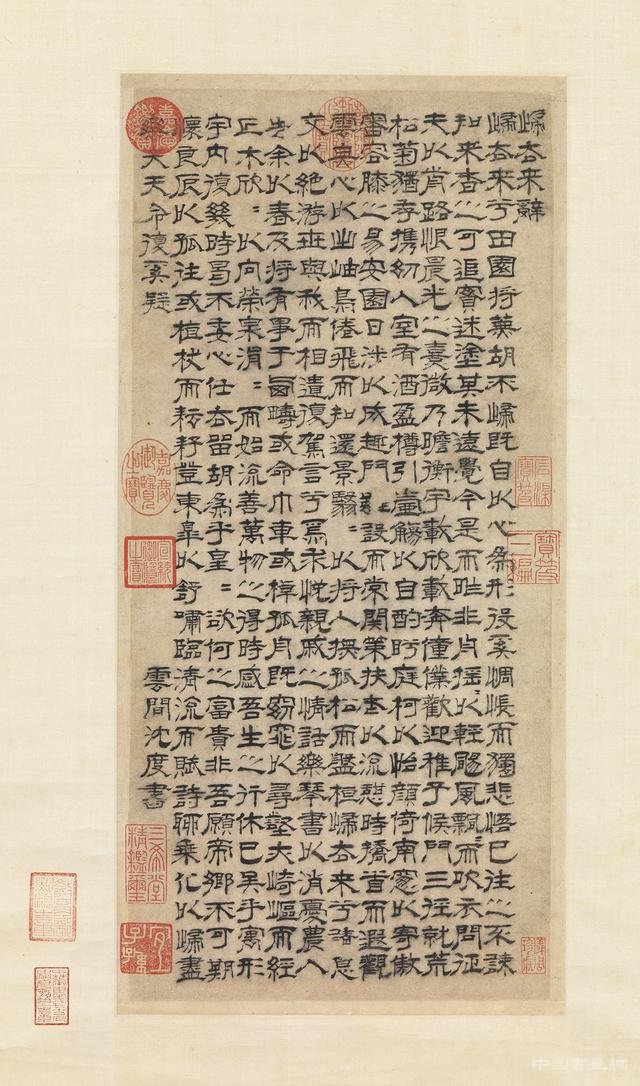 歸去來辭
歸去來兮田園將蕪胡不歸既自以心為形役奚惆悵而獨悲悟已往之不諫
知來者之可追實迷塗其未遠覺今是而昨非舟搖〻以輕颺風飄〻而吹衣問征
夫以前路恨晨光之熹微乃瞻衡宇載欣載奔僮僕歡迎稚子候門三徑就荒
松菊猶存攜幼入室有酒盈樽引壺觴以自酌眄庭柯以怡顏倚南窗以寄傲
審容膝之易安園日涉以成趣門雖設而常關策扶老以流憩時矯首而遐觀
雲無心以出岫鳥倦飛而知還景翳〻以將入撫孤松而盤桓歸去來兮請息
交以絕游世與我而相遺復駕言兮焉求悅親戚之情話樂琴書以消憂農人
告余以春及將有事于西疇或命巾車或棹孤舟既窈窕以尋壑亦崎嶇而經
丘木欣〻以向榮泉涓〻而始流善萬物之得時感吾生之行休已矣乎寓形
宇內復幾時曷不委心任去留胡為乎皇〻欲何之富貴非吾願帝鄉不可期
懷良辰以孤往或植杖而耘耔登東皋以舒嘯臨清流而賦詩聊乘化以歸盡
樂夫天命復奚疑
雲間沈度書
嘉慶鑑賞
嘉慶御覽之寶
宣統御覽之寶
三希堂精鑑璽
宜子孫
石渠寶笈
寶笈三編